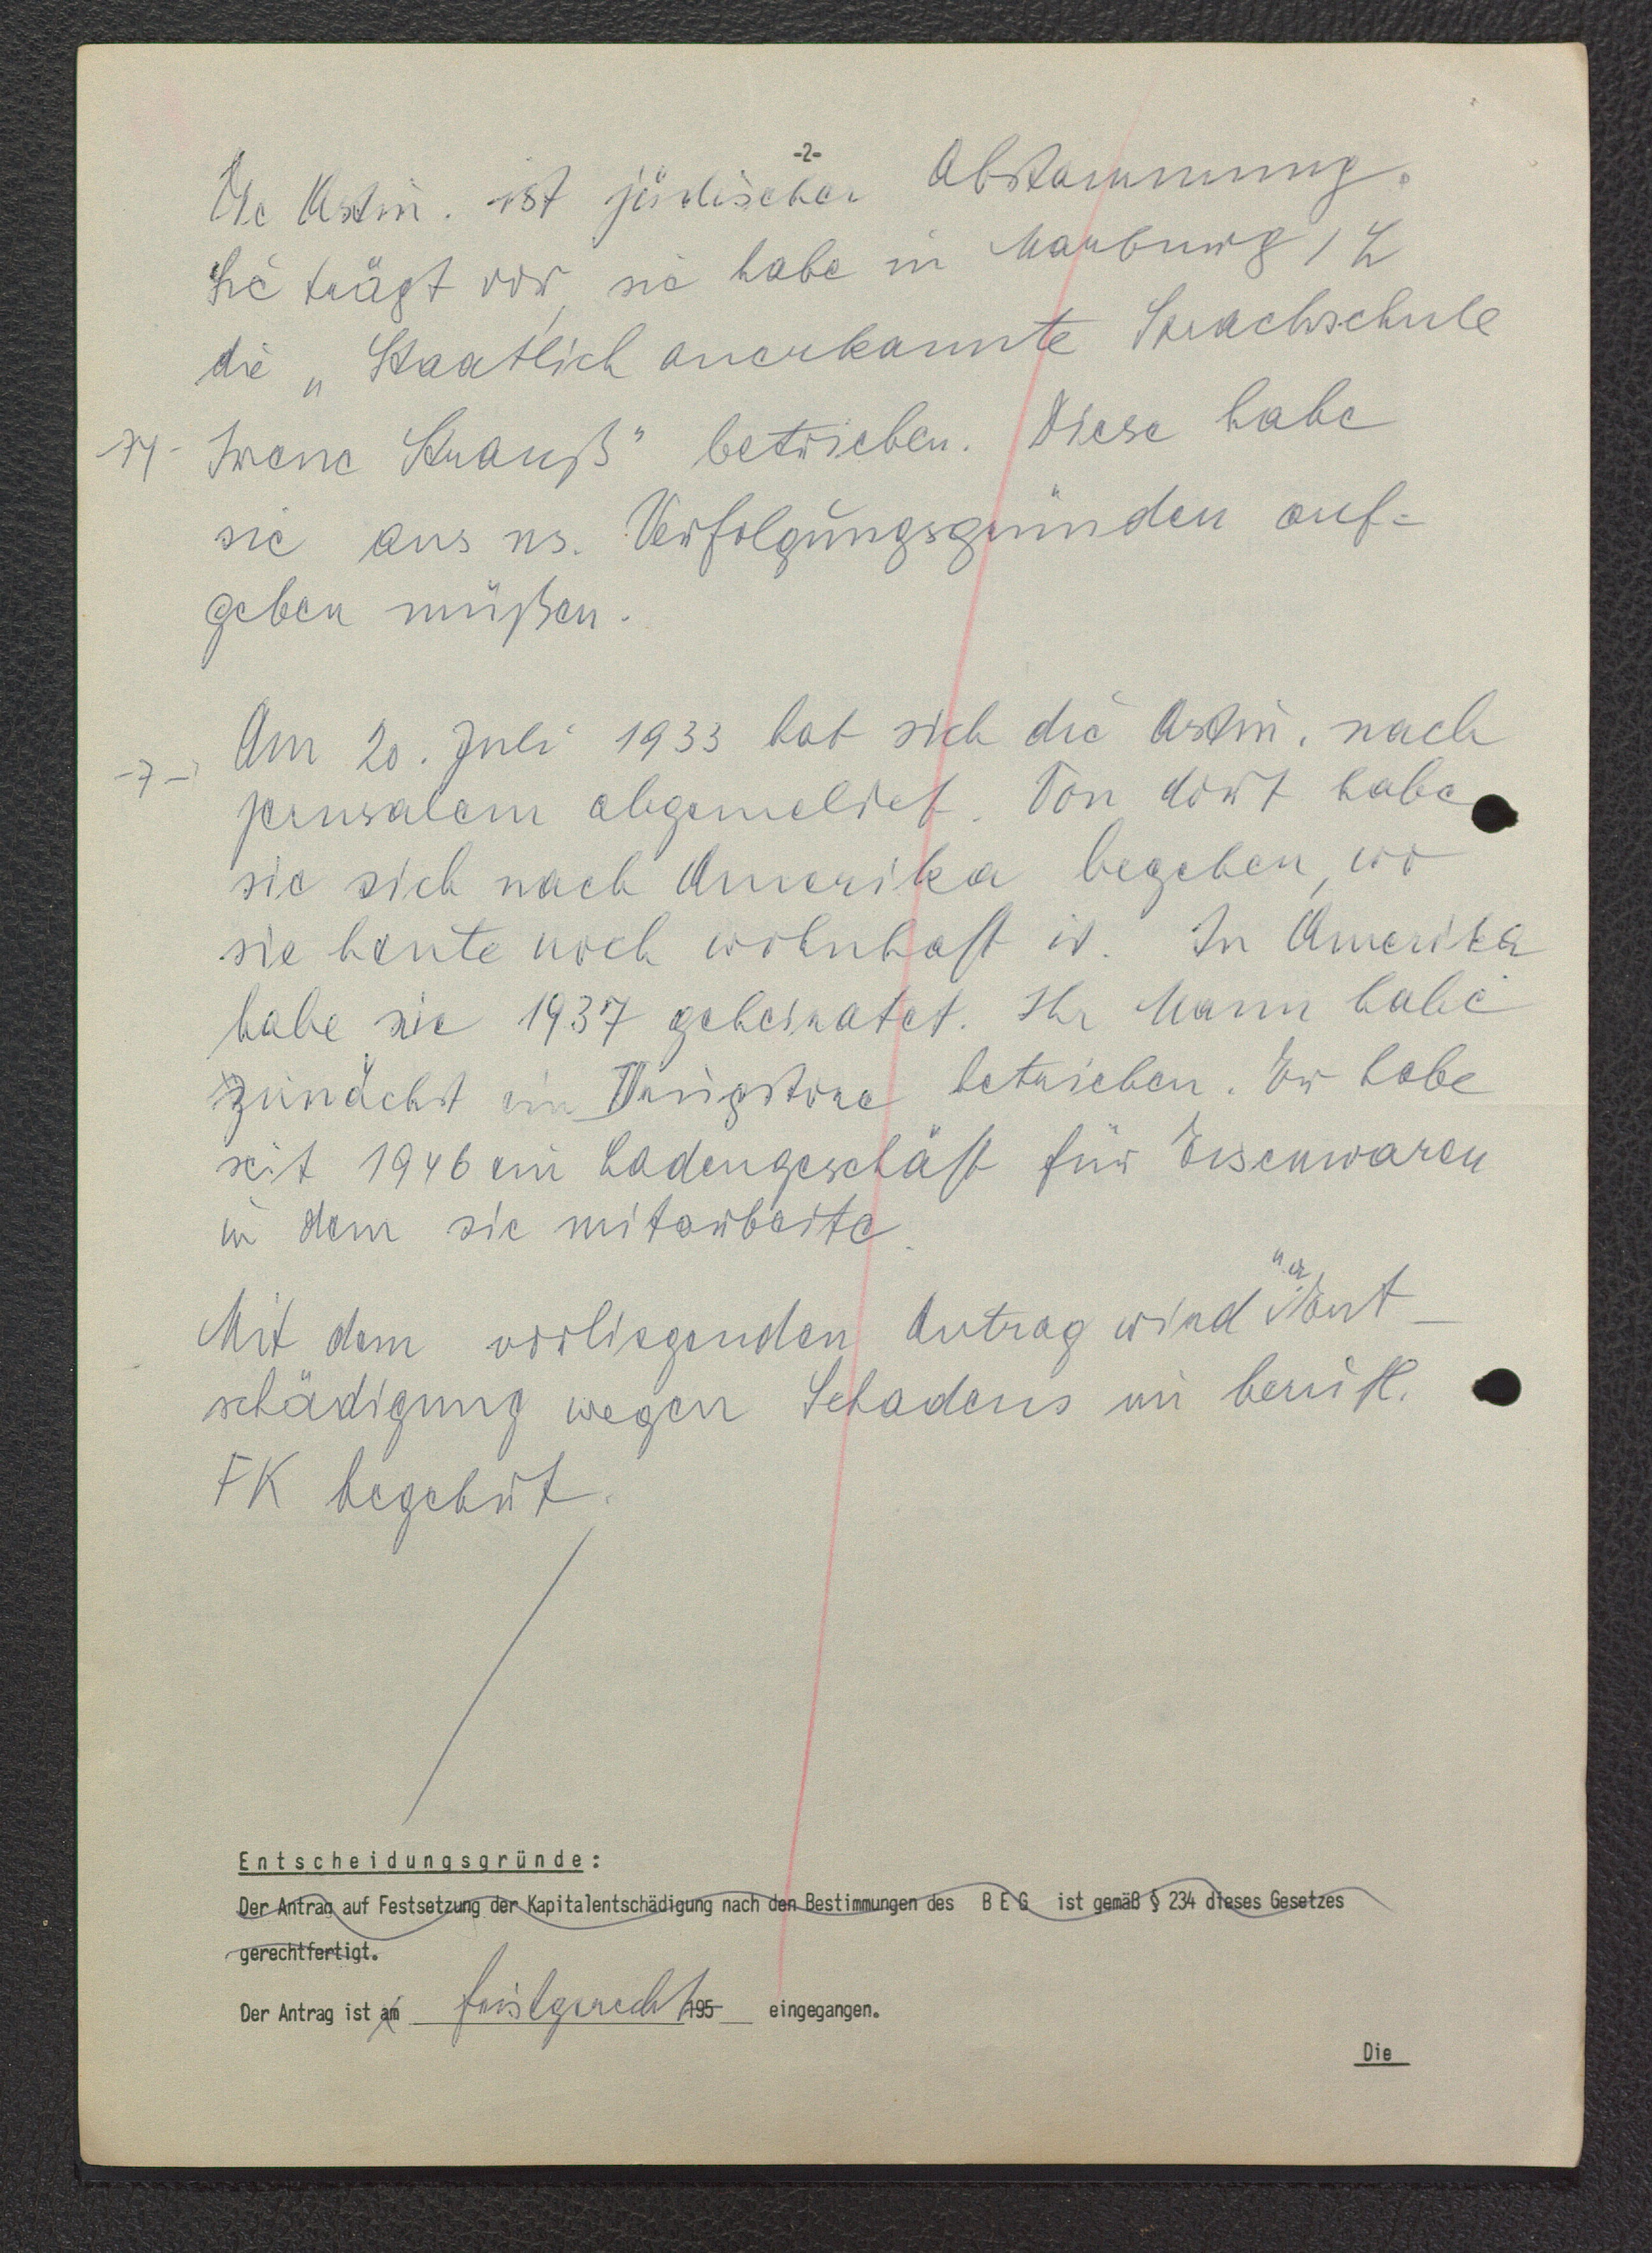 -2-
Die Astin. ist jüdischer Abstammung.
Sie trägt vor, sie habe in Marburg / L
die „Staatlich anerkannte Sprachschule
Irene Strauß" betrieben. Diese habe
sie aus ns. Verfolgungsgründen auf=
geben müßen.
Am 20. Juli 1933 hat sich die Astin. nach
-7-
Jerusalem abgemeldet. Von dort habe
sie sich nach Amerika begeben, wo
sie heute noch wohnhaft ist. In Amerika
habe sie 1937 geheiratet. Ihr Mann habe
zunächst ein Drugstore betrieben. Er habe
seit 1946 ein Ladengeschäft für Eisenwaren
in dem sie mitarbeite.
Mit dem vorliegenden Antrag wird u.a. Ent-
schädigung wegen Schadens im berufl.
FK begehrt.
Entscheidungsgründe:
Der Antrag auf Festsetzung der Kapitalentschädigung nach den Bestimmungen des B E G ist gemäß § 234 dieses Gesetzes
gerechtfertigt.
Der Antrag ist am fristgerecht 195 eingegangen.
Die